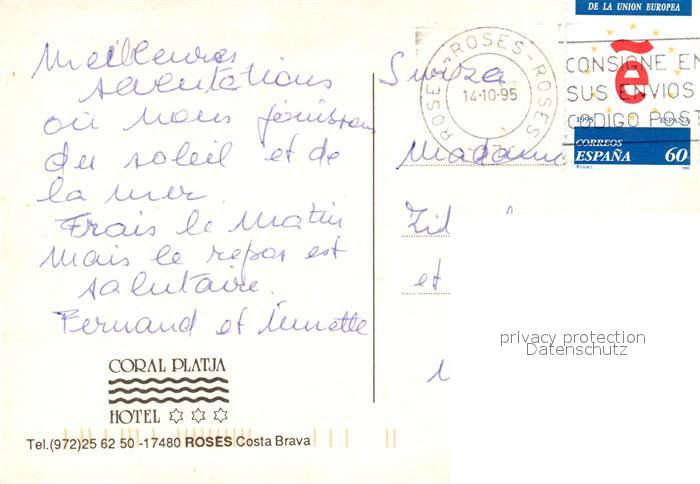 Meilleures
salutations
où nous jouissons
du soleil et de
la mer.
Frais le matin
mais le repos est
salutaire.
Fernand et
CORAL PLATJA
HOTEL
Tel.(972)25 62 50 -17480 ROSES Costa Brava
DE LA UNION EUROPEA
ROSES-ROSES-ROSES
14-10-95
CONSIGNE EN
SUS ENVIOS
CODIGO POST
1995 ESPAÑA
CORREOS
ESPAÑA 60
Suiza
Madame
et
privacy protection
Datenschutz